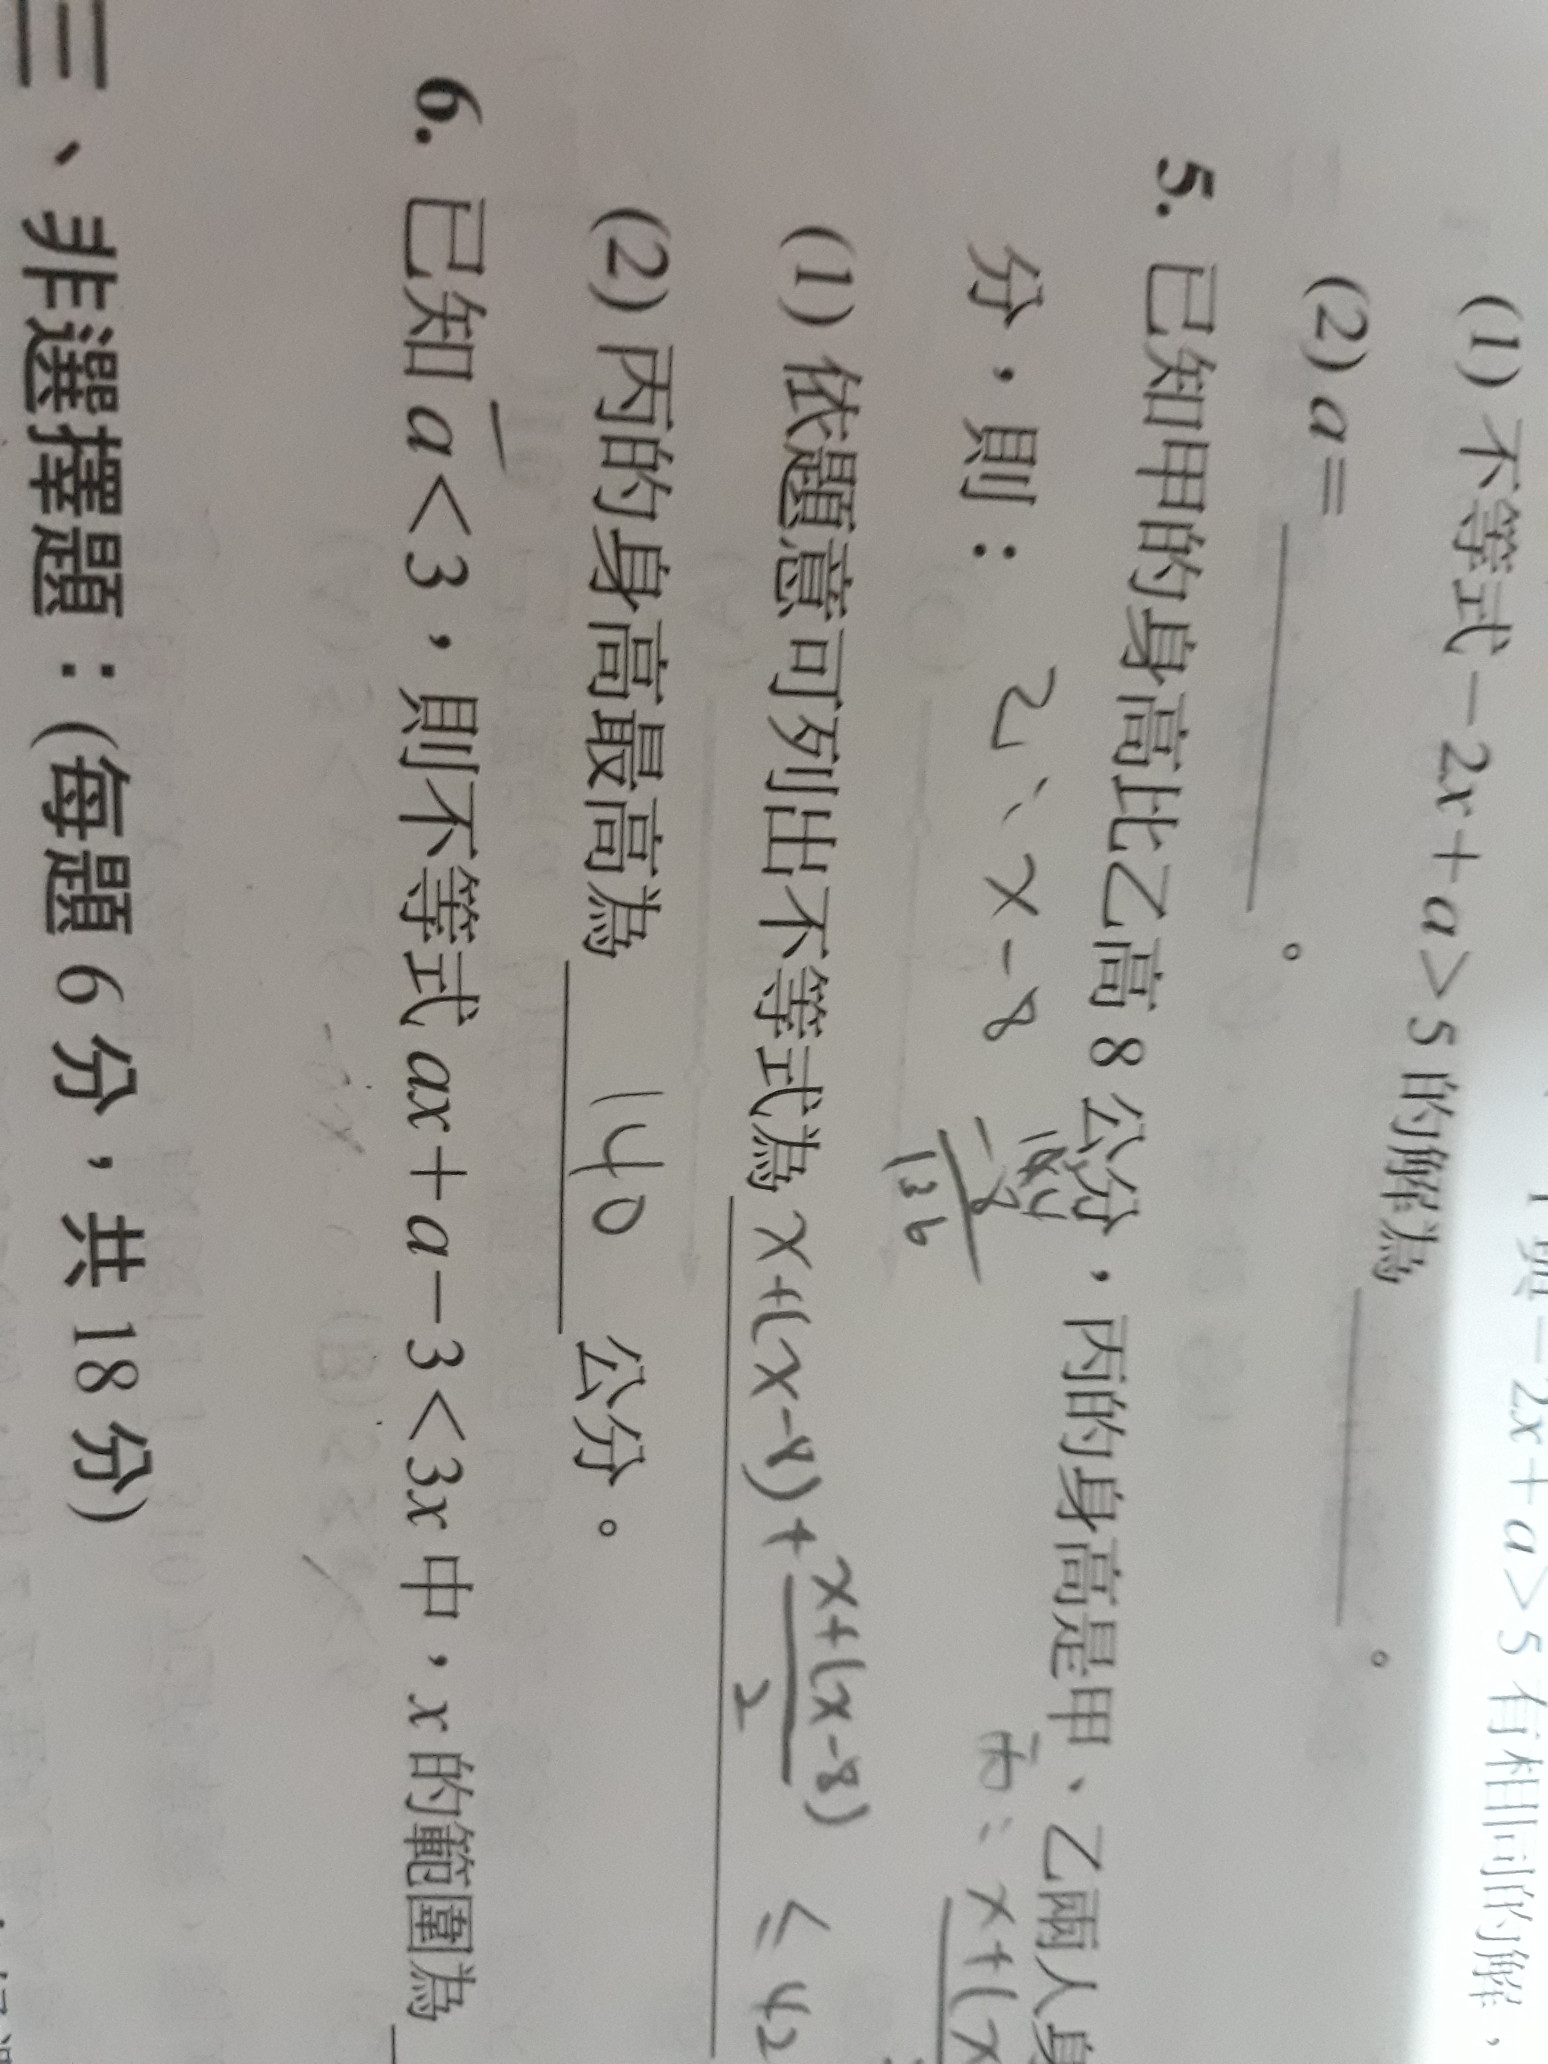 -2x+a>5有相同的解，
(1) 不等式-2x+a>5的解為
。
(2) a=
。
5. 已知甲的身高比乙高8公分，丙的身高是甲、乙兩人身
分，則：
乙: x-8
-8
136
丙: x+(x
(1) 依題意可列出不等式為 x+(x-8)+ x+(x-8) / 2 ≤ 42
(2) 丙的身高最高為 140 公分。
6. 已知 a<3，則不等式 ax+a-3<3x 中，x 的範圍為
三、非選擇題：(每題6分，共18分)